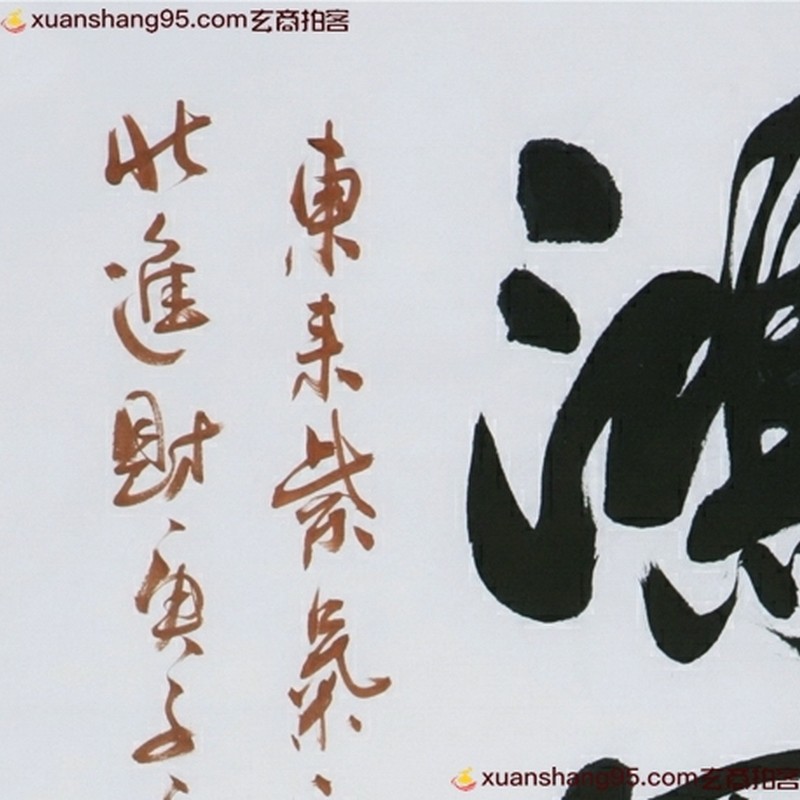 xuanshang95.com玄商拍客
鴻
東来紫氣
北進財庚子
xuanshang95.com玄商拍客